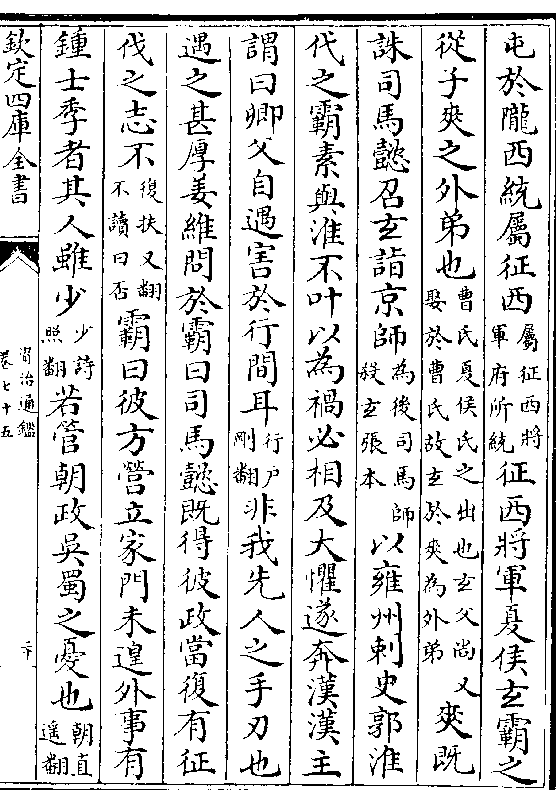 屯於隴西統屬征西屬征西將軍府所統征西將軍夏侯玄霸之
從子爽之外弟也曹氏夏侯氏之出也玄父尚又娶於曹氏故玄於爽為外弟爽既
誅司馬懿召玄詣京師為後司馬師殺玄張本以雍州刺史郭淮
代之霸素與淮不叶以為禍必相及大懼遂奔漢漢主
謂曰卿父自遇害於行間耳行戶剛翻非我先人之手刃也
遇之甚厚姜維問於霸曰司馬懿既得彼政當復有征
伐之志不復扶又翻不讀曰否霸曰彼方營立家門未遑外事有
鍾士季者其人雖少少詩照翻若管朝政吳蜀之憂也朝直遥翻
欽定四庫全書
資治通鑑
卷七十五